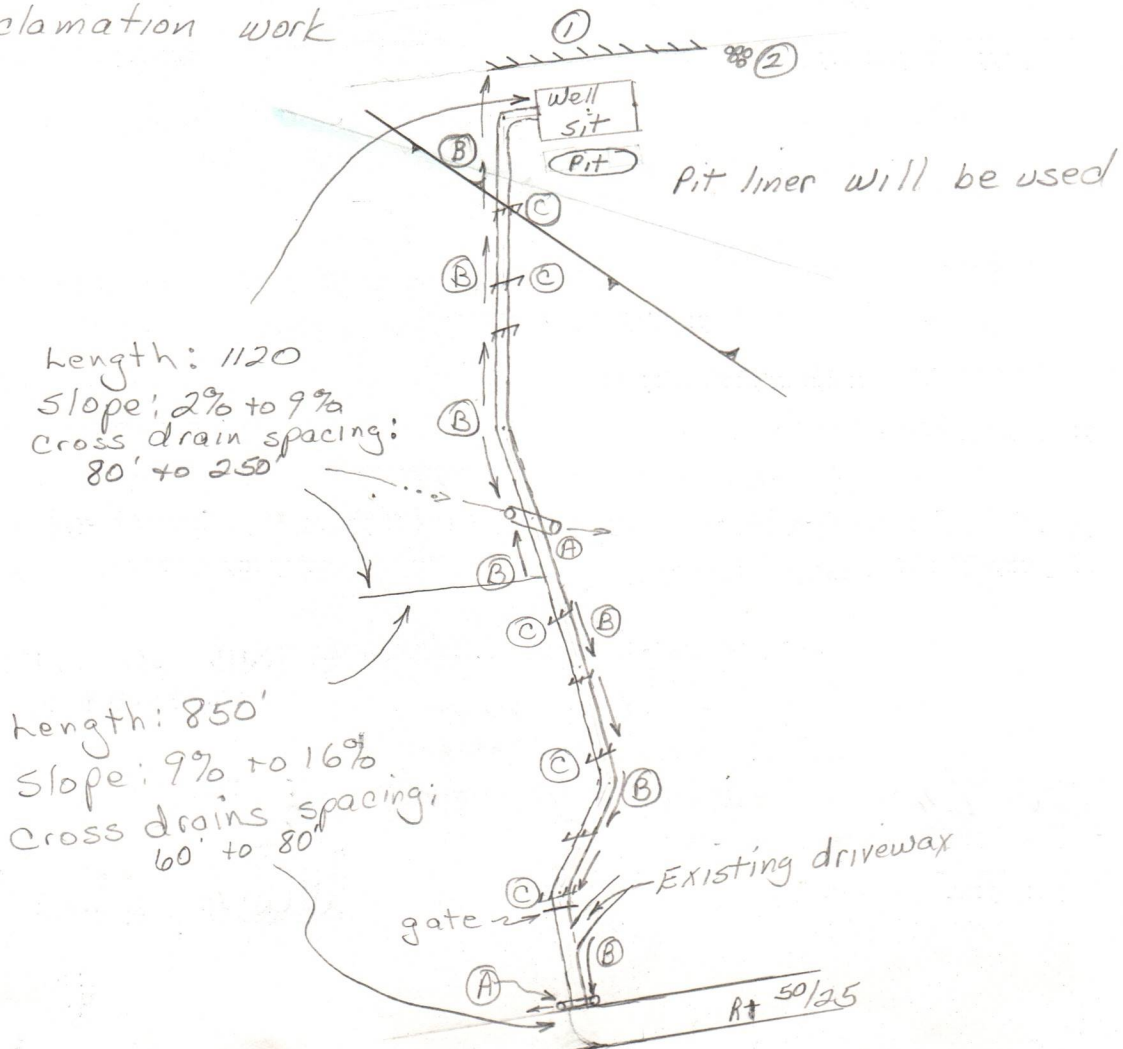 clamation work
1
2
Well
sit
Pit
Pit liner will be used
B
C
B
C
Length: 1120
Slope: 2% to 9%
Cross drain spacing:
80' to 250'
B
A
B
C
B
Length: 850'
Slope: 9% to 16%
Cross drains spacing;
60' to 80'
C
B
Existing driveway
C
gate
B
A
Rt 50/25